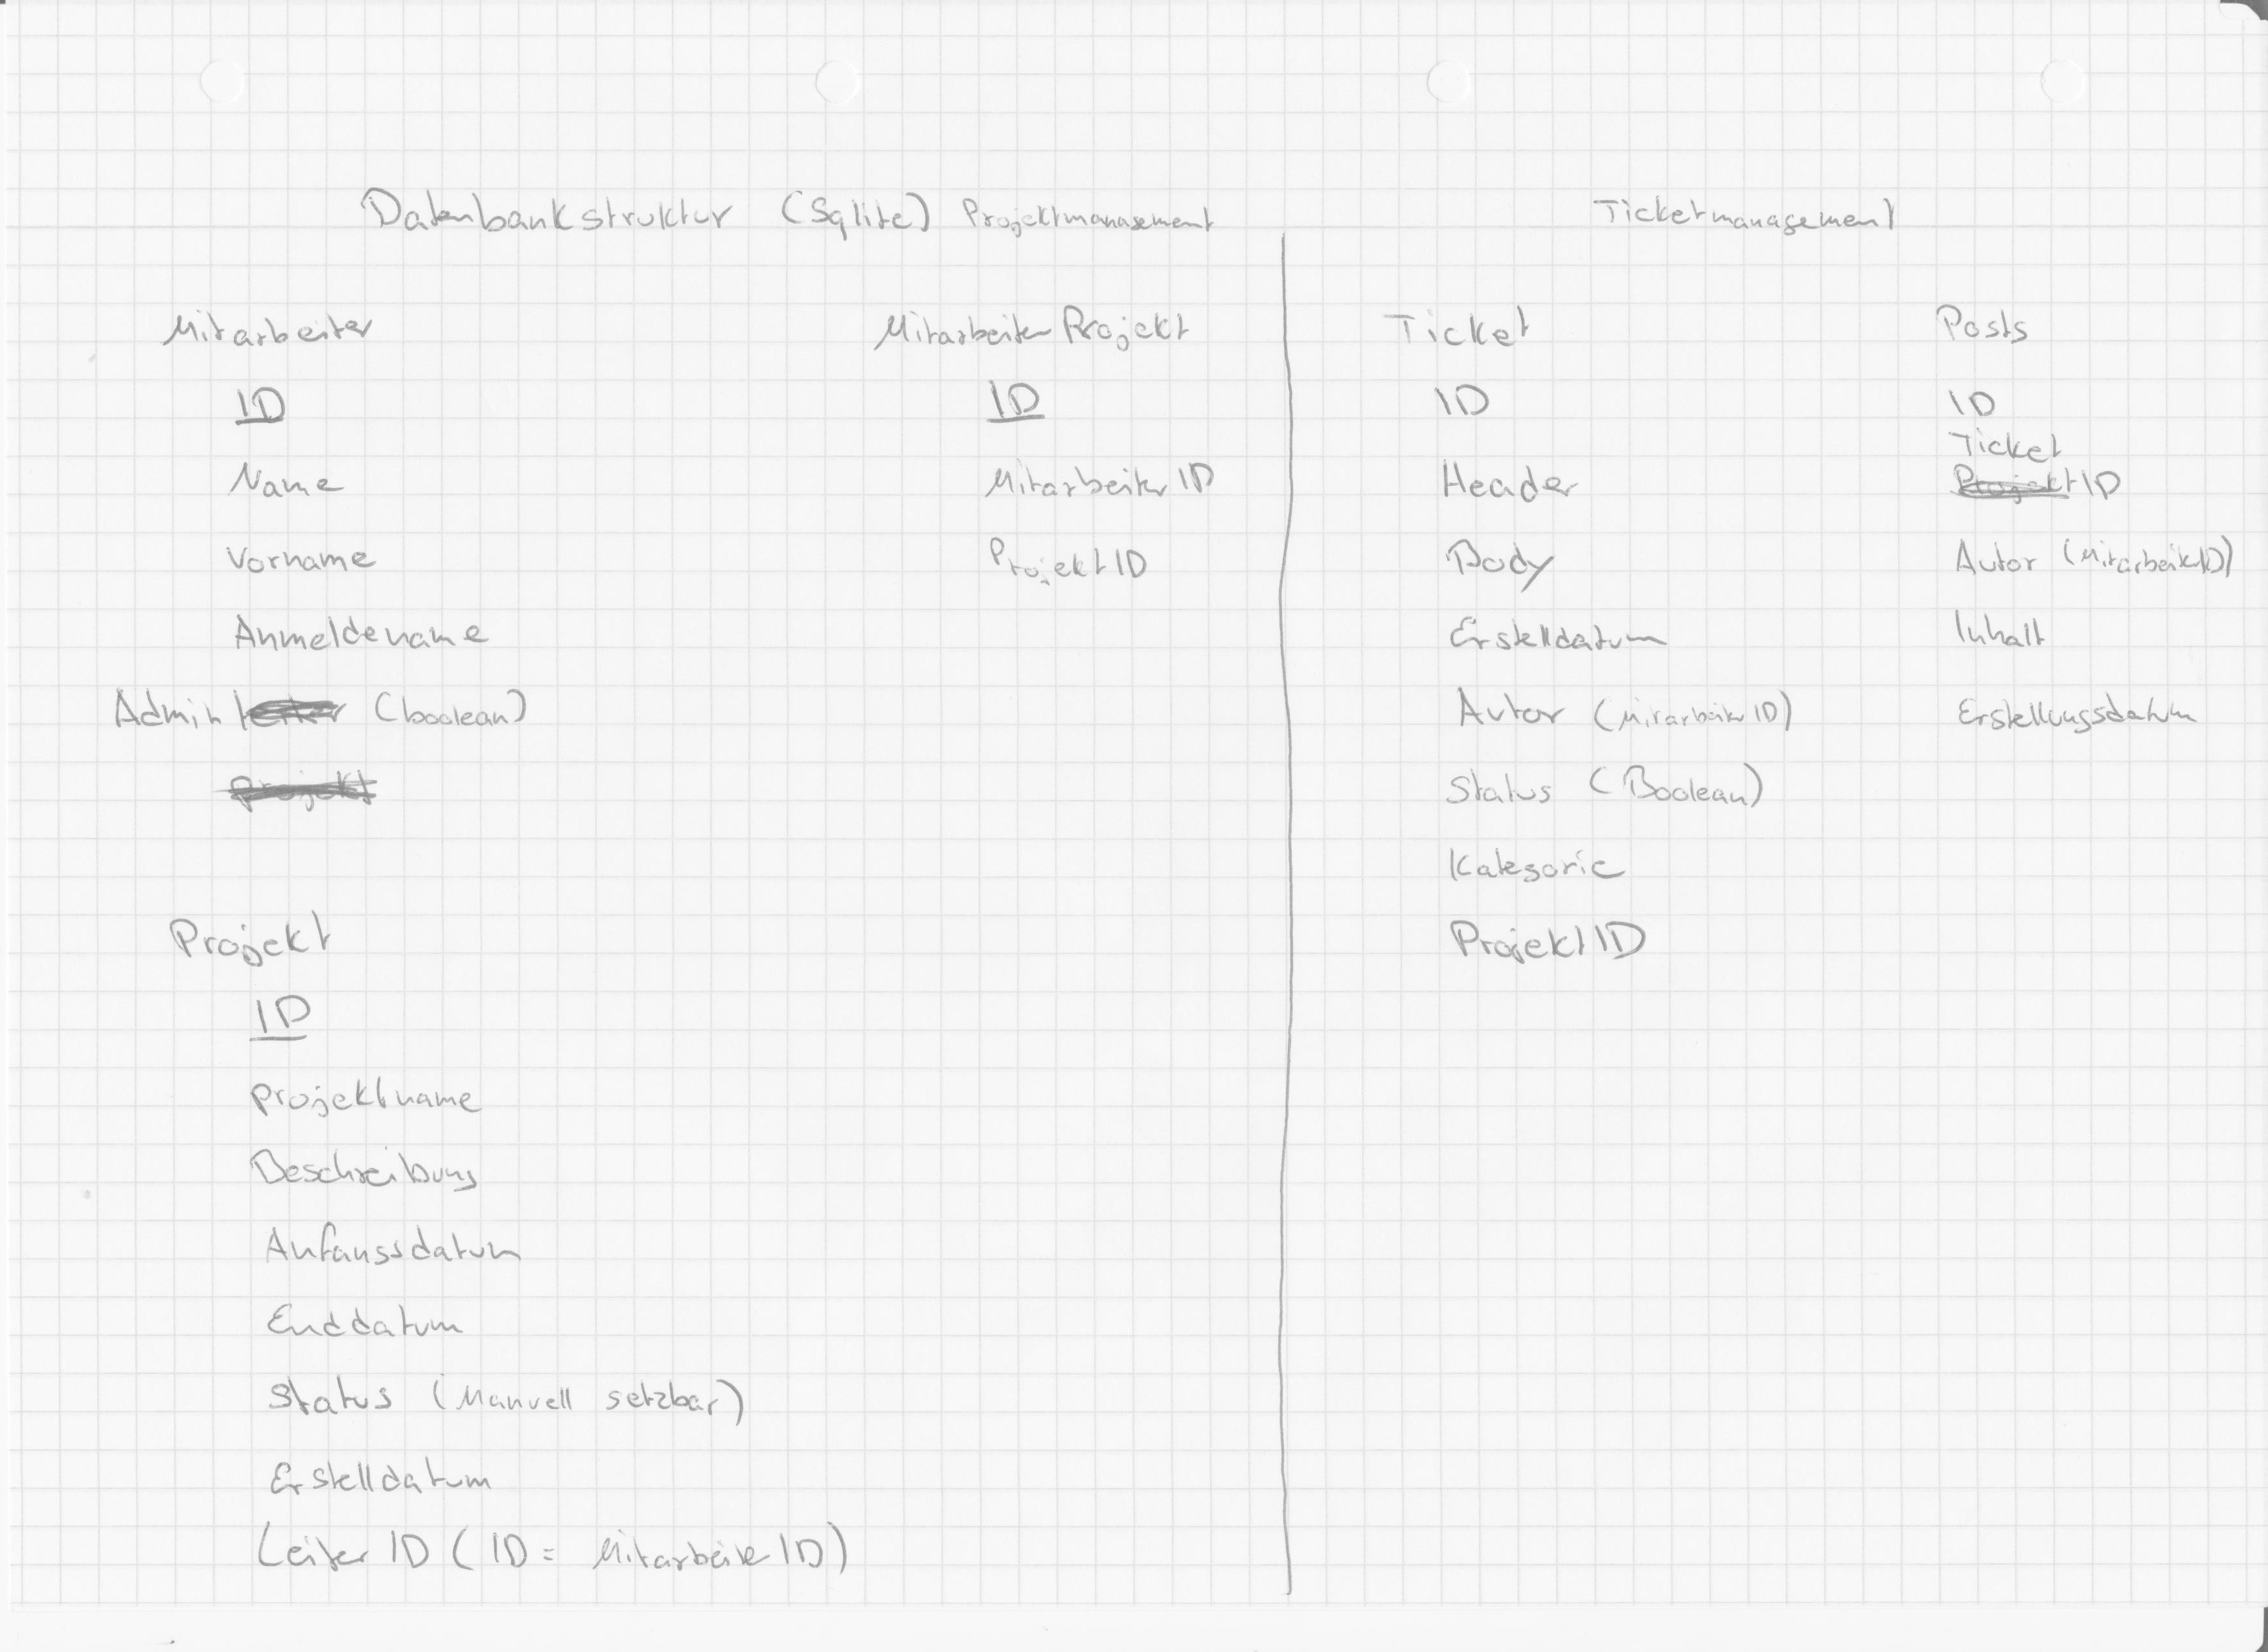 Datenbankstruktur (Sqlite) Projektmanagement
Mitarbeiter
ID
Name
Vorname
Anmeldename
Admin leiter (boolean)
Projekt
Projekt
ID
Projektname
Beschreibung
Anfangsdatum
Enddatum
Status (Manuell setzbar)
Erstelldatum
Leiter ID (ID = Mitarbeiter ID)
Mitarbeiter Projekt
ID
Mitarbeiter ID
Projekt ID
Ticketmanagement
Ticket
ID
Header
Body
Erstelldatum
Autor (Mitarbeiter ID)
Status (Boolean)
Kategorie
Projekt ID
Posts
ID
Ticket
Projekt ID
Autor (Mitarbeiter ID)
Inhalt
Erstellungsdatum